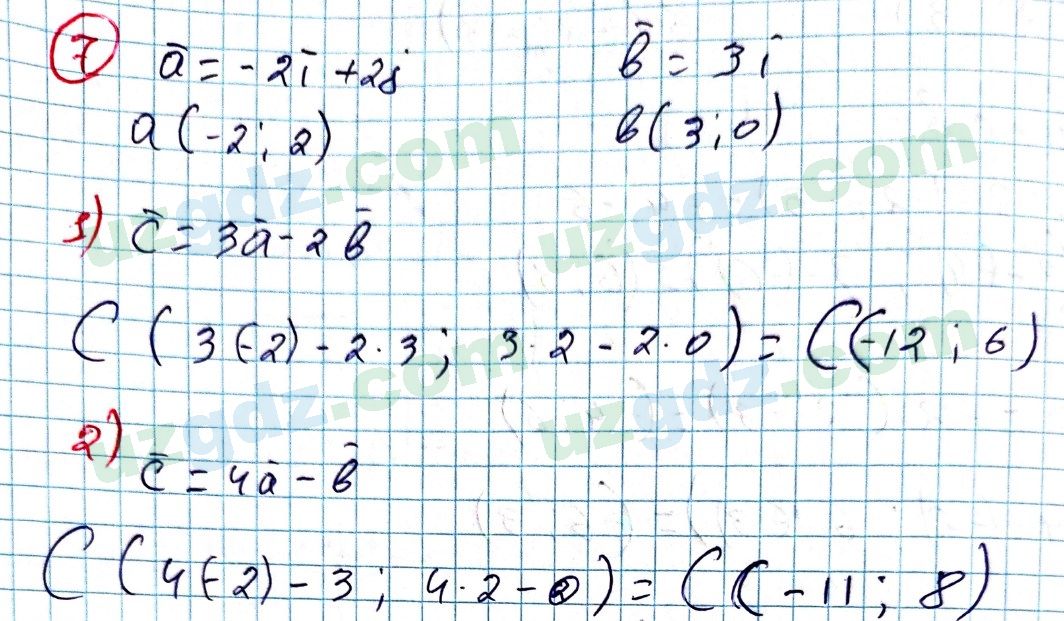 7 ā = -2i + 2j b̄ = 3i
a (-2; 2) b(3; 0)
1) c̄ = 3ā - 2b̄
C (3(-2) - 2·3; 3·2 - 2·0) = C(-12; 6)
2) c̄ = 4ā - b̄
C (4(-2) - 3; 4·2 - 0) = C(-11; 8)
uzgdz.com
uzgdz.com
uzgdz.com
uzgdz.com